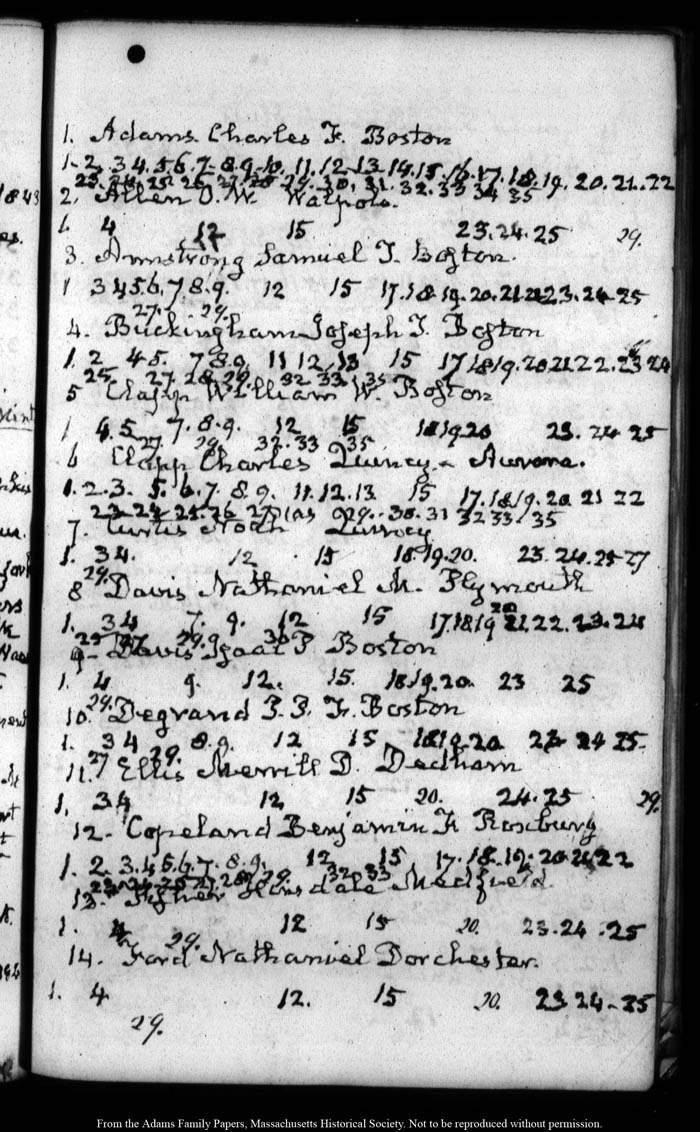 1. Adams Charles F. Boston
1. 2. 3 4. 5. 6. 7. 8. 9. 10. 11. 12 13. 14. 15. 16. 17. 18. 19. 20. 21. 22
23. 24. 25 26. 27. 28. 29. 30. 31. 32. 33 34 35
2. Allen O. W. Walpole.
1. 4 12 15 23. 24. 25 29.
3. Armstrong Samuel T. Boston.
1 3 4 5. 6. 7 8. 9. 12 15 17. 18. 19. 20. 21 22 23. 24 25
27. 29.
4. Buckingham Joseph T. Boston
1. 2 4 5. 7 8 9. 11 12. 13 15 17 18 19. 20 21 22. 23 24
25 27. 28. 29. 32 33. 35
5 Clapp William W. Boston
1 4. 5 7. 8. 9. 12 15 18 19 20 23. 24 25
27. 29. 32. 33 35
6 Clapp Charles Quincy Aurora.
1. 2. 3. 5. 6. 7. 8. 9. 11. 12. 13 15 17. 18. 19. 20 21 22
23 24 25. 26 27 29. 30. 31 32 33. 35
7. Curtis Noah Quincy
1. 3 4. 12 15 18. 19. 20. 23. 24. 25 27
29.
8 Davis Nathaniel M. Plymouth
1. 3 4 7. 9. 12 15 17. 18. 19 20 21. 22. 23. 24
25 27 29.
9. Davis Isaac P. Boston
1. 4 9. 12. 15. 18. 19. 20. 23 25
29.
10. Degrand P. P. F. Boston
1. 3 4 8. 9. 12 15 18. 19. 20 23 24 25
27 29.
11. Ellis Merrill D. Dedham
1. 3 4 12 15 20. 24. 25 29.
12. Copeland Benjamin F. Roxbury
1. 2. 3. 4 5. 6. 7. 8. 9. 12 15 17. 18. 19. 20 21 22
23 24 25 27 28 29. 32 33
13. Hinsdale Medfield
1. 4 12 15 20. 23. 24. 25
29.
14. Ford Nathaniel Dorchester.
1. 4 12. 15 20. 23 24 25
29.
From the Adams Family Papers, Massachusetts Historical Society. Not to be reproduced without permission.